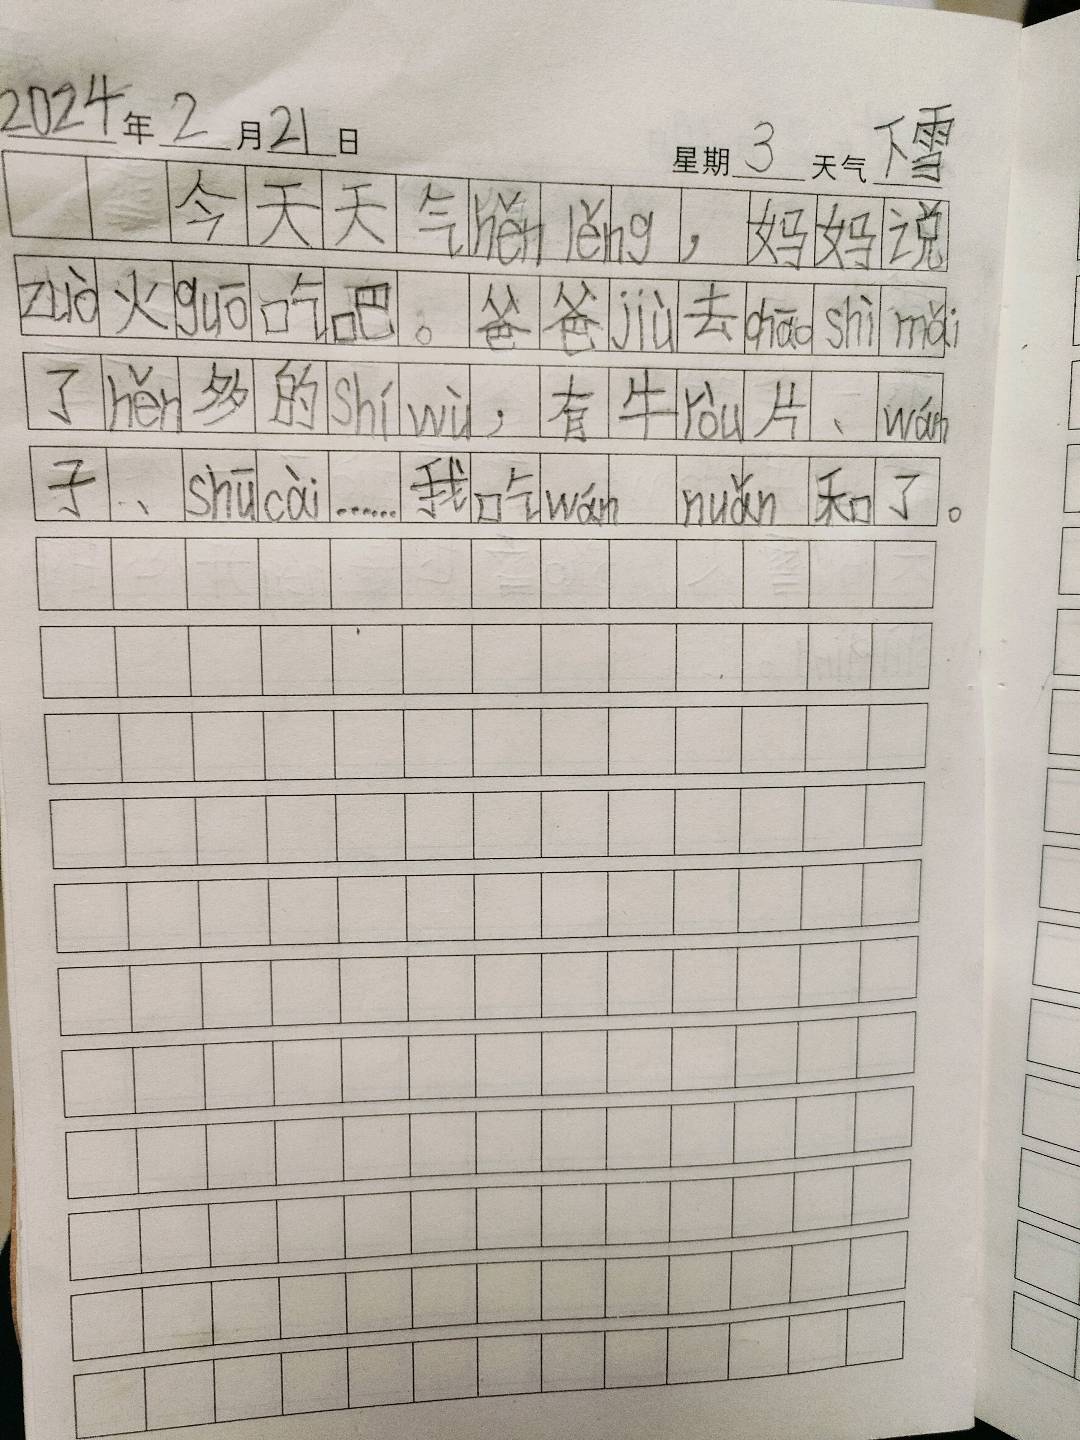 2024年2月21日 星期3 天气下雪
今天天气hěn lěng，妈妈说
zuò火guō吃吧。爸爸jiù去chāo shì mǎi
了hěn多的shí wù，有牛ròu片、wán
子、shū cài……我吃wán nuǎn和了。